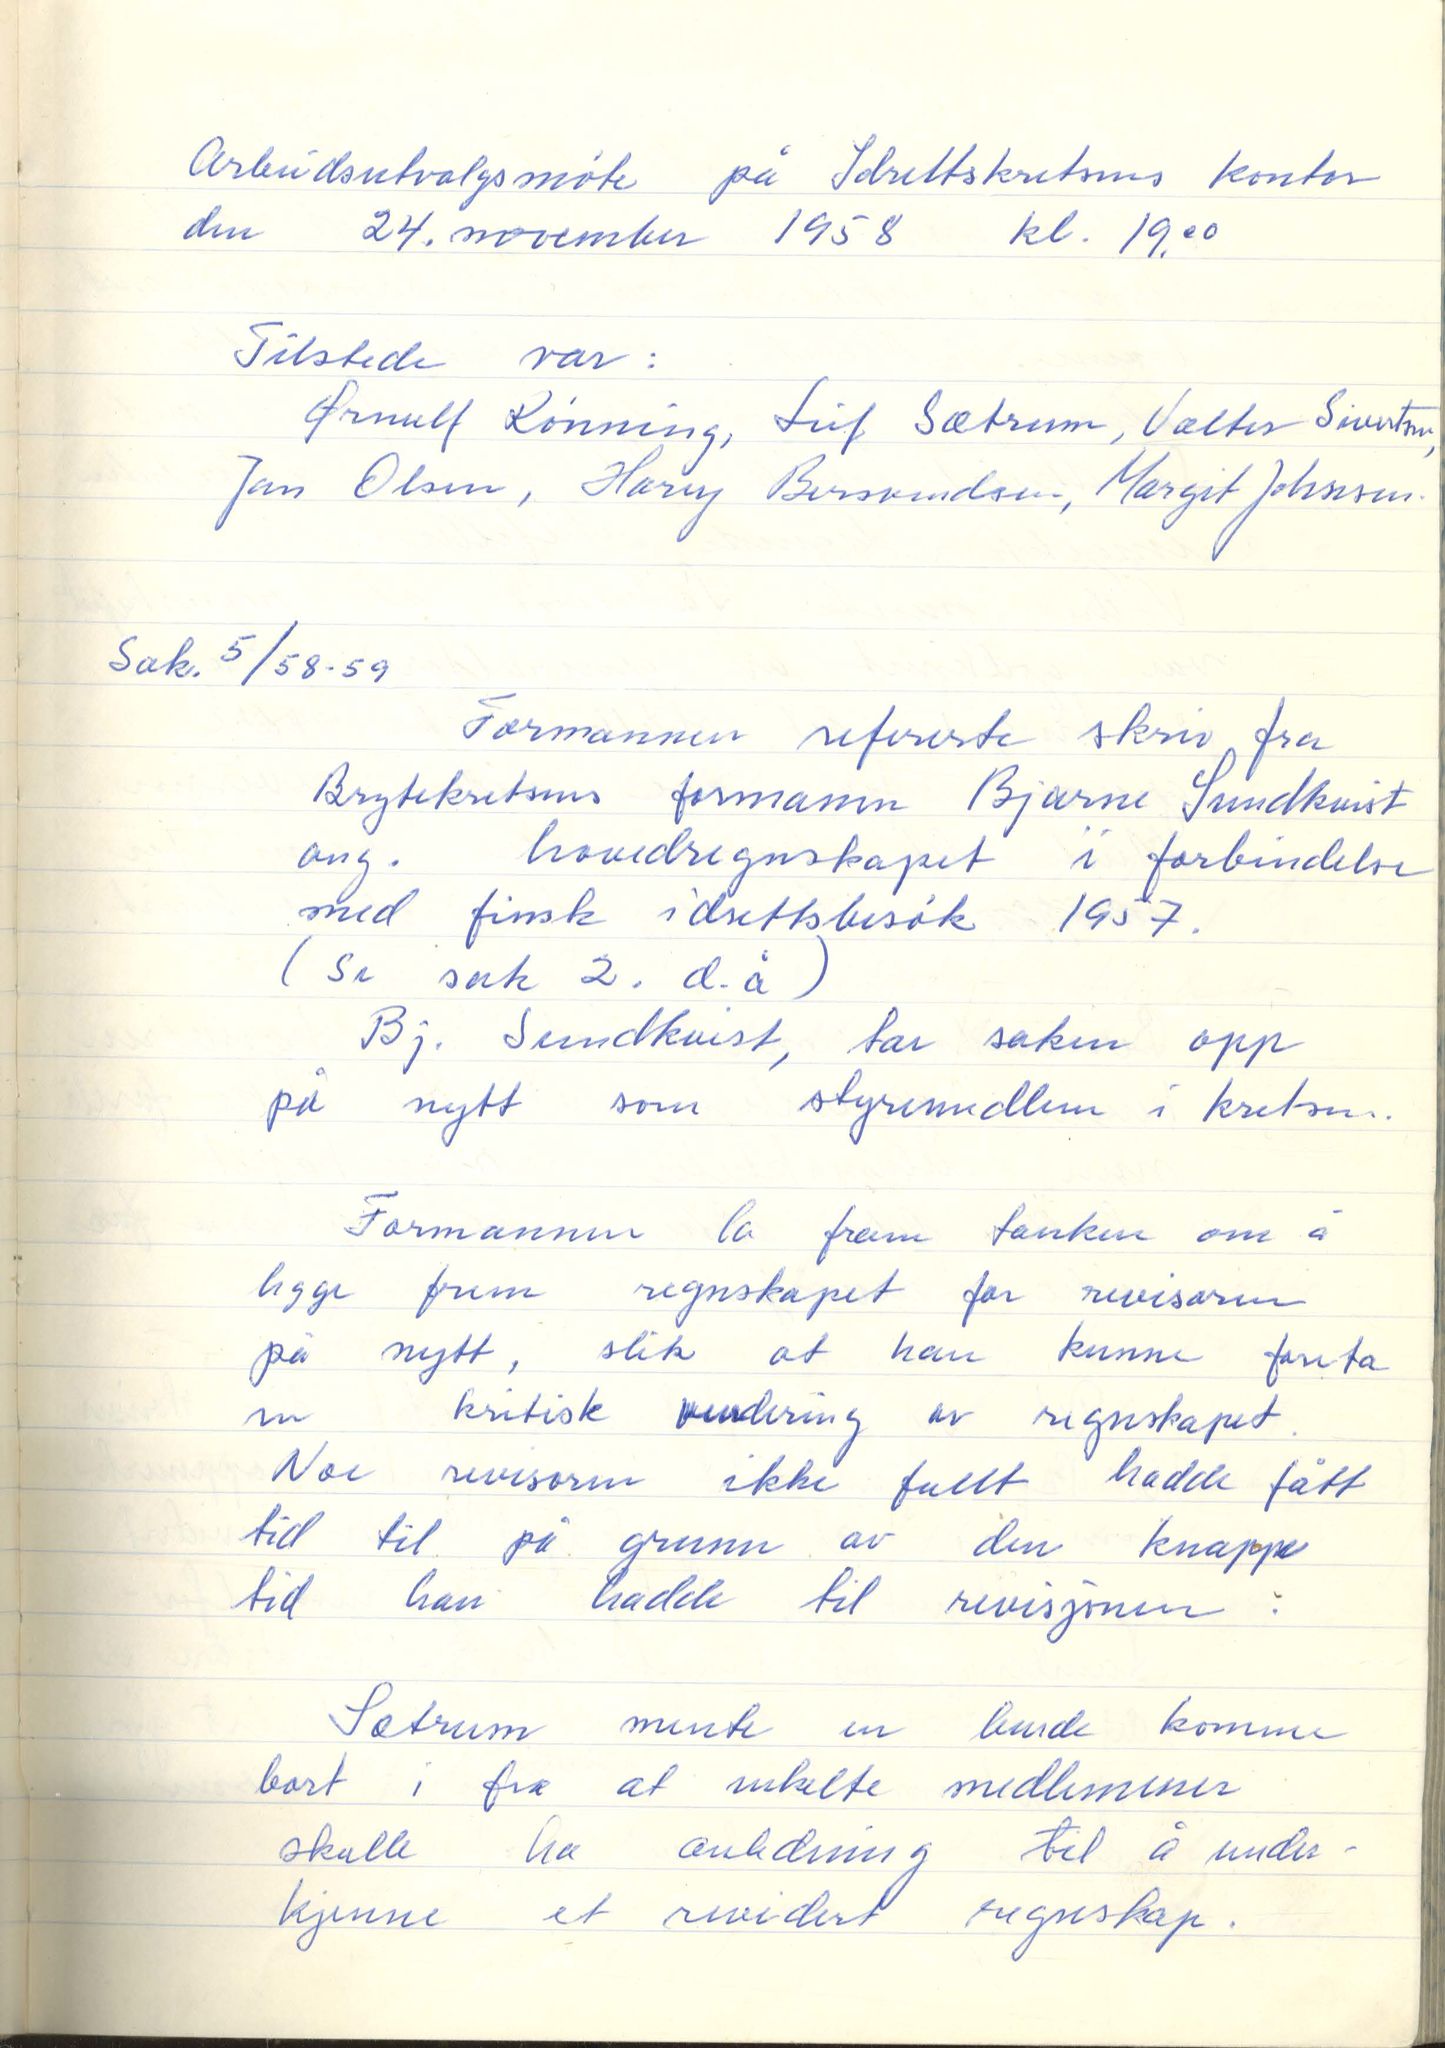 Arbeidsutvalgsmöte på Idrettskretsens kontor
den 24. november 1958 kl. 19.00
Tilstede var:
Ørnulf Rönning, Leif Sætrum, Valter Sivertsen,
Jan Olsen, Harry Bersvendsen, Margit Johnsen.
Sak. 5/58-59
Formannen refererte skriv fra
Brytekretsens formann Bjarne Sundkvist
ang. hovedregnskapet i forbindelse
med finsk idrettsbesök 1957.
(Se sak 2. d.å)
Bj. Sundkvist, tar saken opp
på nytt som styremedlem i kretsen.
Formannen la fram tanken om å
legge frem regnskapet for revisoren
på nytt, slik at han kunne foreta
en kritisk vurdering av regnskapet.
Noe revisoren ikke fullt hadde fått
tid til på grunn av den knappe
tid han hadde til revisjonen.
Sætrum mente en burde komme
bort i fra at enkelte medlemmer
skulle ha anledning til å under-
kjenne et revidert regnskap.